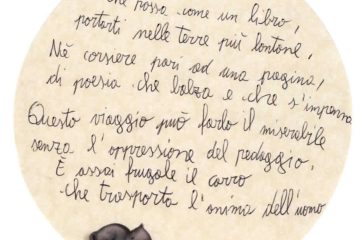 che possa come un libro,
portarti nelle terre più lontane,
Nè corsiere pari ad una pagina,
di poesia che balza e che s'impenna
Questo viaggio può farlo il miserabile
senza l'oppressione del pedaggio,
È assai frugale il carro
che trasporta l'anima dell'uomo